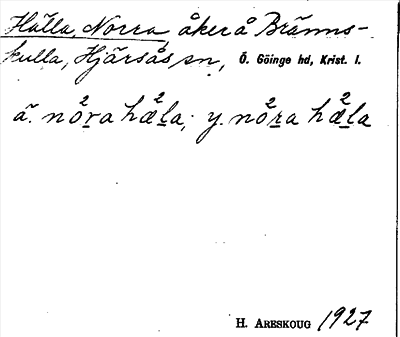 Hälla, Norra, åker å Bränns-
kulla, Hjärsås sn, Ö. Göinge hd, Krist. l.
ä. nò²ra hæ²la; y. nò²ra hæ²la
H. ARESKOUG 1927